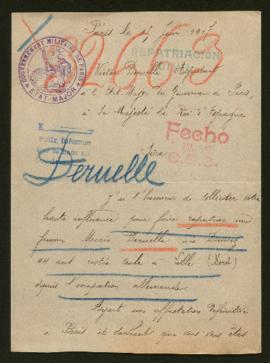 Paris le 27 juin 1917
2653
REPATRIACION
GOUVERNEMENT MILITAIRE DE PARIS
ÉTAT-MAJOR
Victor Deruelle
à l'État Major du Gouverneur de Paris,
à Sa Majesté le Roi d'Espagne
Fecho
Sire
Deruelle
J'ai l'honneur de solliciter votre
haute influence pour faire rapatrier ma
femme Deruelle née
44 ans restée seule à Lille (Nord)
depuis l'occupation allemande.
Ayant une affectation
à Paris et sachant que vous vous êtes